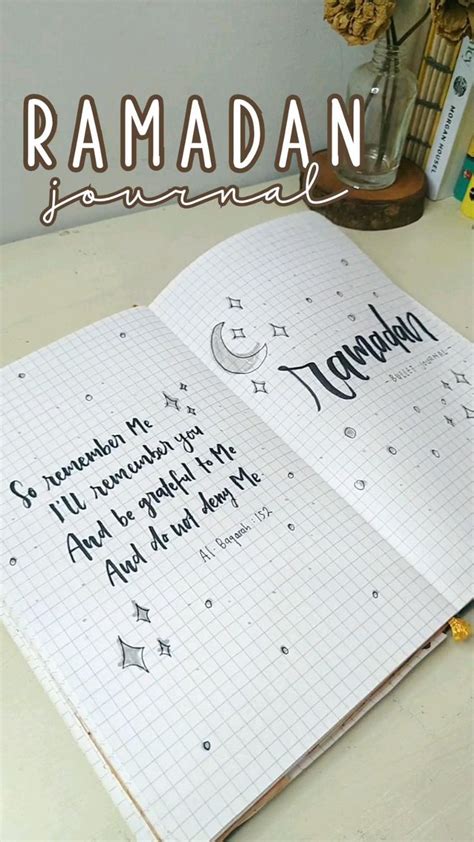 RAMADAN
journal
So remember Me
I'll remember you
And be grateful to Me
And do not deny Me.
Al-Baqarah : 152
ramadan
- BULLET JOURNAL -
MORGAN HOUSEL